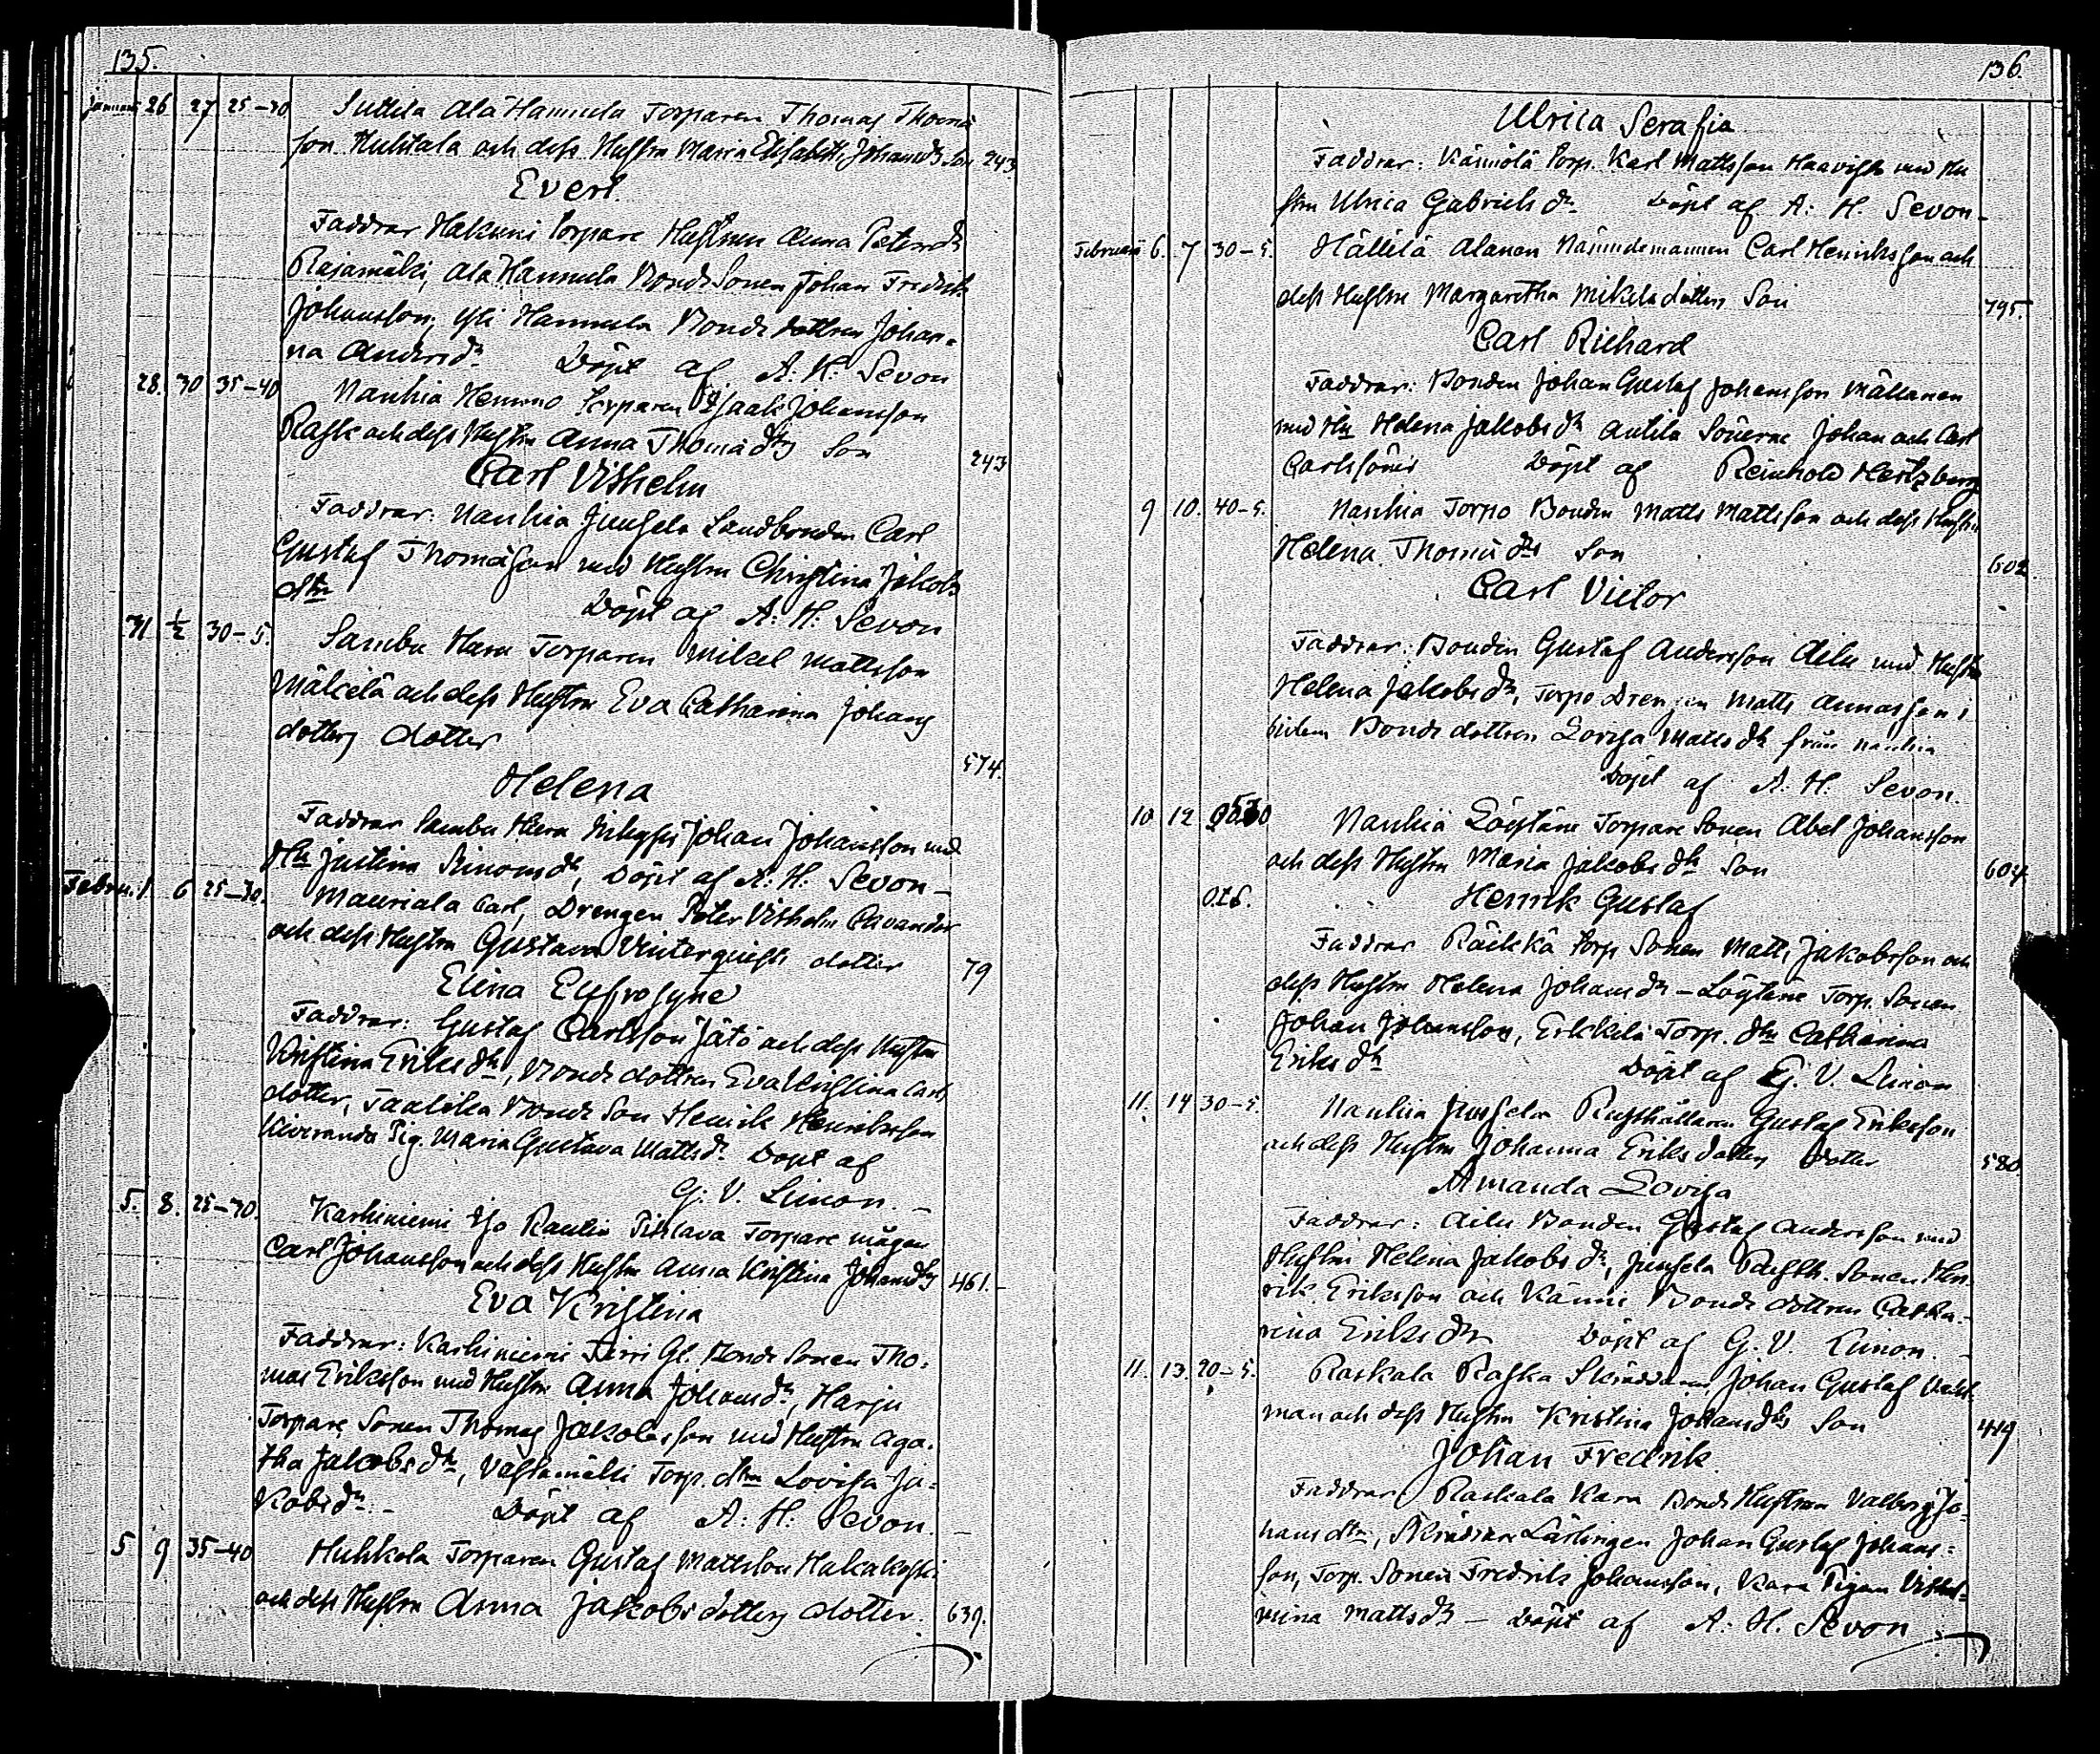 135.
Januari 26 27 25–30 Suttila Ala Hannula Torparen Thomas Thomä
son Huhtala och dess Hustru Maria Elisabeth Johansdrs Son 243
Evert.
Faddrar Hakuni Torpare Hustrun Anna Petersdr
Rajamäki, Ala Hannula Bonde Sonen Johan Fredrik
Johansson, Yli Hannula Bonde dottren Johan-
na Andersdr Döpt af A: H: Sevon
28. 30 35–40 Nanhia Hemmo Torparen Isaak Johansson
Rask och dess Hustru Anna Thomädrs Son 243
Carl Vilhelm
Faddrar: Nanhia Junsela Landbonden Carl
Gustaf Thomäson med Hustru Christina Jakobs
dtr Döpt af A: H: Sevon
31 ½ 30–5. Sambu Hara Torparen Mikel Mattsson
Mäkelä och dess Hustru Eva Catharina Johans
dotters dotter 574.
Helena
Faddrar Sambu Hara Inhyses Johan Johansson med
Hu Justina Simonsdr, Döpt af A: H: Sevon –
Febru. 1. 6 25–30. Mauriala Carl, Drengen Peter Vilhelm Cavander
och dess Hustru Gustava Vinterquists dotter 79
Elina Eufrosyne
Faddrar: Gustaf Carlsson Jätö och dess Hustru
Kristina Eriksdr, Bonde dottren Eva Kristina Carls
dotter, Taalikka Bonde Son Henrik Henriksson
Kiveranda Pig. Maria Gustava Mattsdr. Döpt af
G: V. Limon. –
5. 8. 25–30. Karhiniemi Iso Rautio Pihlava Torpare mågen
Carl Johansson och dess Hustru Anna Kristina Johansdrs 461. –
Eva Kristina
Faddrar: Karhiniemi Gl. Bonde Sonen Tho:
mas Eriksson med Hustru Anna Johansdr, Harju
Torpare Sonen Thomas Jakobsson med Hustru Aga:
tha Jakobsdr, Västamäki Torp. dtrn Lovisa Ja:
kobsdr. – Döpt af A: H: Sevon. –
5 9 35–40 Huhkola Torparen Gustaf Mattsson Hakakoski
och dess Hustru Anna Jakobsdotters dotter. 639.
136.
Ulrica Serafia
Faddrar: Kännölä Torp. Karl Mattsson Haavisto med Hu
stru Ulrica Gabrielsdr. Döpt af A: H. Sevon –
Februari 6. 7 30–5. Hällilä Alanen Nämndemannen Carl Henriksson och
dess Hustru Margaretha Mikelsdotters Son 795.
Carl Richard
Faddrar: Bonden Johan Gustaf Johansson Mällanen
med Hu Helena Jakobsdr Antila Sönerne Johan och Carl
Carlssöner Döpt af Reinhold Hertzberg
9 10. 40–5. Nanhia Torpo Bonden Matts Mattsson och dess Hustru
Helena Thomädrs Son 602
Carl Victor
Faddrar: Bonden Gustaf Andersson Aila med Hustru
Helena Jakobsdr, Torpo Drengen Matts Annasson i
bidem Bonde dottren Lovisa Mattsdr från Nanhia
Döpt af A. H. Sevon.
10 12 Nanhia Löystäne Torpare Sonen Abel Johansson
och dess Hustru Maria Jakobsdrs Son 604
Henrik Gustaf
Faddrar Räikkä Torp Sonen Matts Jakobsson och
dess Hustru Helena Johansdr – Löytäne Torp. Sonen
Johan Johansson, Erkkilä Torp. dtr Catharina
Eriksdr Döpt af G. V. Limon
11. 14 30–5. Nanhia Junsela Rusthållaren Gustaf Eriksson
och dess Hustru Johanna Eriksdotters dotter 580
Amanda Lovisa
Faddrar: Aila Bonden Gustaf Andersson med
Hustru Helena Jakobsdr, Junsela Rusth. Sonen Hen
rik Eriksson och Känni Bonde dottren Catha-
rina Eriksdtr Döpt af G. V. Limon. –
11. 13. 20–5. Raskala Raska Skräddaren Johan Gustaf
man och dess Hustru Kristina Johansdrs Son 419
Johan Fredrik
Faddrar Raskala Kara Bonde Hustrun Valborg Jo:
hansdtr, Skräddare Lärlingen Johan Gustaf Johans:
son, Torp. Sonen Fredrik Johansson, Kara Pigan Vilhel:
mina Mattsdr – Döpt af A. H. Sevon